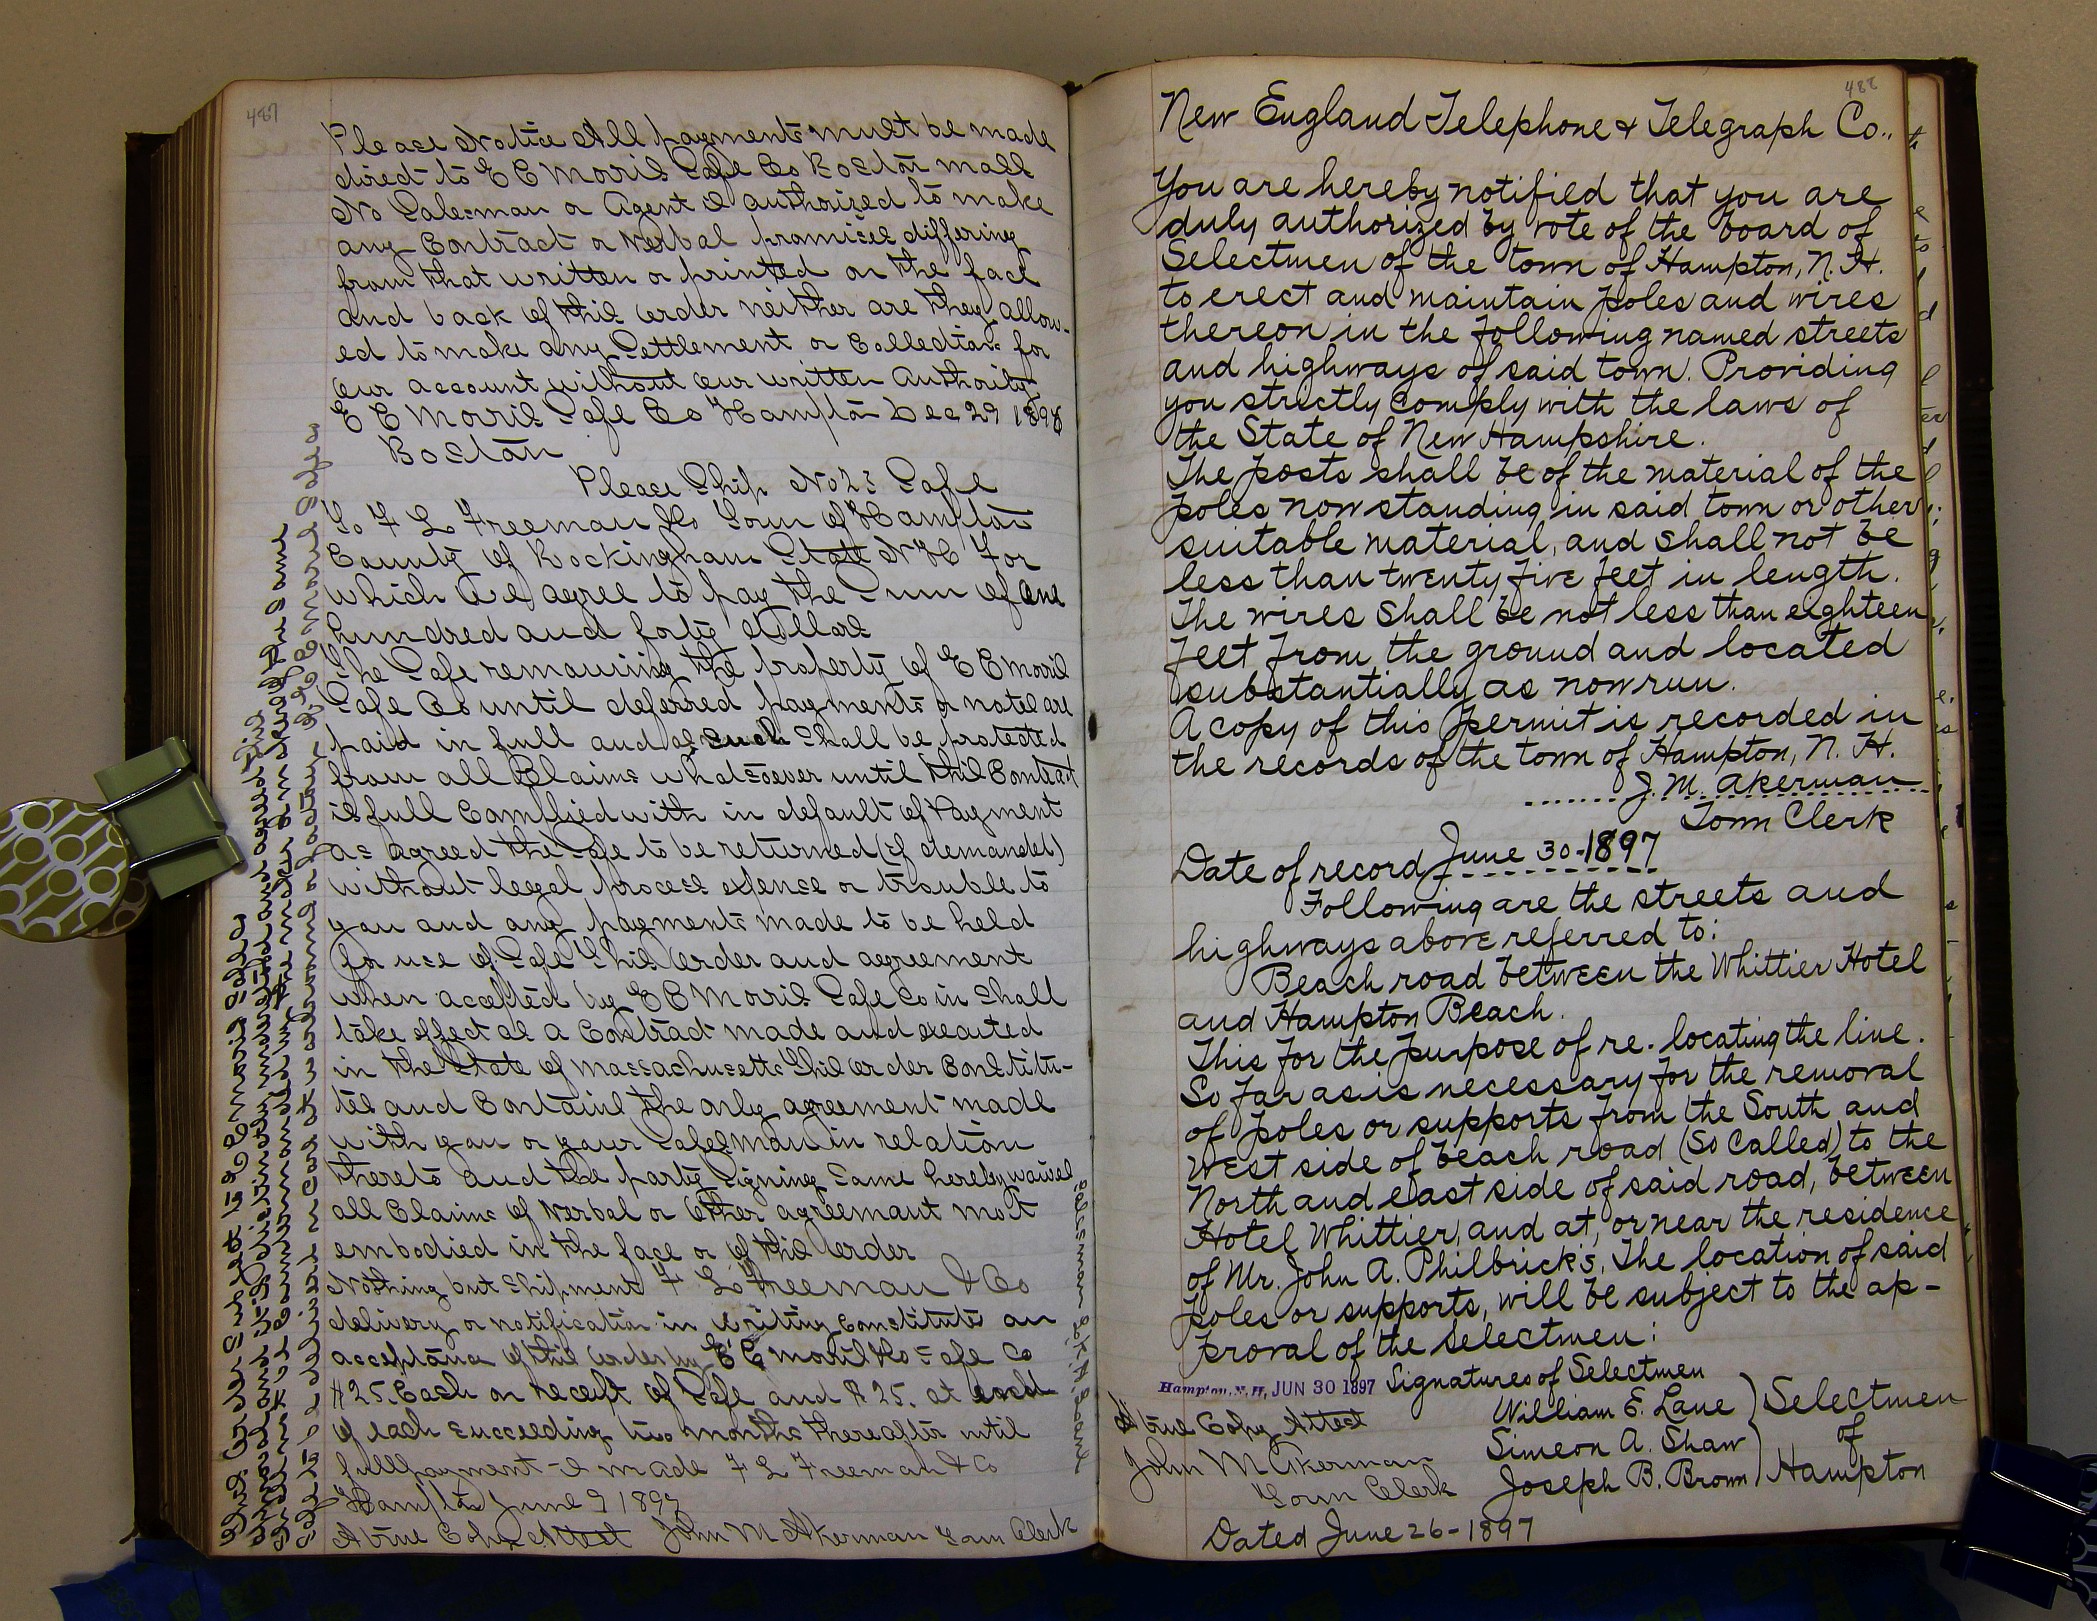 487
Please Notice All payments must be made
direct to E C Morris Safe Co Boston mass
No Salesman or Agent is authorized to make
any Contract or Verbal promises differing
from that written or printed on the face
and back of this order neither are they allow-
ed to make any Settlement or Collections for
our account without our written Authority
E C Morris Safe Co Hampton Dec 29 1896
Boston
Please Ship No 25 Safe
To F L Freeman &Co Town of Hampton
County of Rockingham State N H For
which We agree to pay the Sum of one
hundred and forty dollars
The Safe remaining the property of E C Morris
Safe Co until deferred payments or notes are
paid in full and as such shall be protected
from all Claims whatsoever until this Contract
is full Complied with in default of Payment
as agreed the Safe to be returned (if demanded)
without legal process expence or trouble to
you and any payments made to be held
for use of Safe This order and agreement
when accepted by E C Morris Safe Co in Shall
take effect as a Contract made and executed
in the State of Massachusetts This order Constitu-
tes and Contains the only agreement made
with you or your Salesman in relation
thereto and the party Signing Same hereby waives
all Claims of Verbal or Other agreemant not
embodied in the face or of this order
Nothing but Shipment F L Freeman & Co
delivery or notification in writing Constitutes an
acceptance of this order by E C Morris &Co Safe Co
$25. Cash on receipt of Safe and $25. at end
of each succeeding two months thereafter until
full payment is made F L Freeman & Co
Hampton June 9 1897
A true Copy Attest John M Akerman Town Clerk
488
New England Telephone & Telegraph Co.,
You are hereby notified that you are
duly authorized by vote of the board of
Selectmen of the town of Hampton, N. H.
to erect and maintain poles and wires
thereon in the following named streets
and highways of said town. Providing
you strictly comply with the laws of
the State of New Hampshire.
The posts shall be of the material of the
poles now standing in said town or other
suitable material, and shall not be
less than twenty five feet in length.
The wires shall be not less than eighteen
feet from the ground and located
substantially as now run.
A copy of this permit is recorded in
the records of the town of Hampton, N. H.
J. M. Akerman
Town Clerk
Date of record June 30-1897
Following are the streets and
highways above referred to:
Beach road between the Whittier Hotel
and Hampton Beach.
This for the purpose of re-locating the line.
So far as is necessary for the removal
of poles or supports from the South and
West side of beach road (So Called) to the
North and east side of said road, between
Hotel Whittier, and at, or near the residence
of Mr. John A. Philbrick's, The location of said
poles or supports, will be subject to the ap-
proval of the selectmen:
Hampton, N. H, JUN 30 1897 Signatures of Selectmen
A true Copy Attest
William E. Lane } Selectmen
John M Akerman Simeon A. Shaw } of
Town Clerk Joseph B. Brown } Hampton
Dated June 26-1897